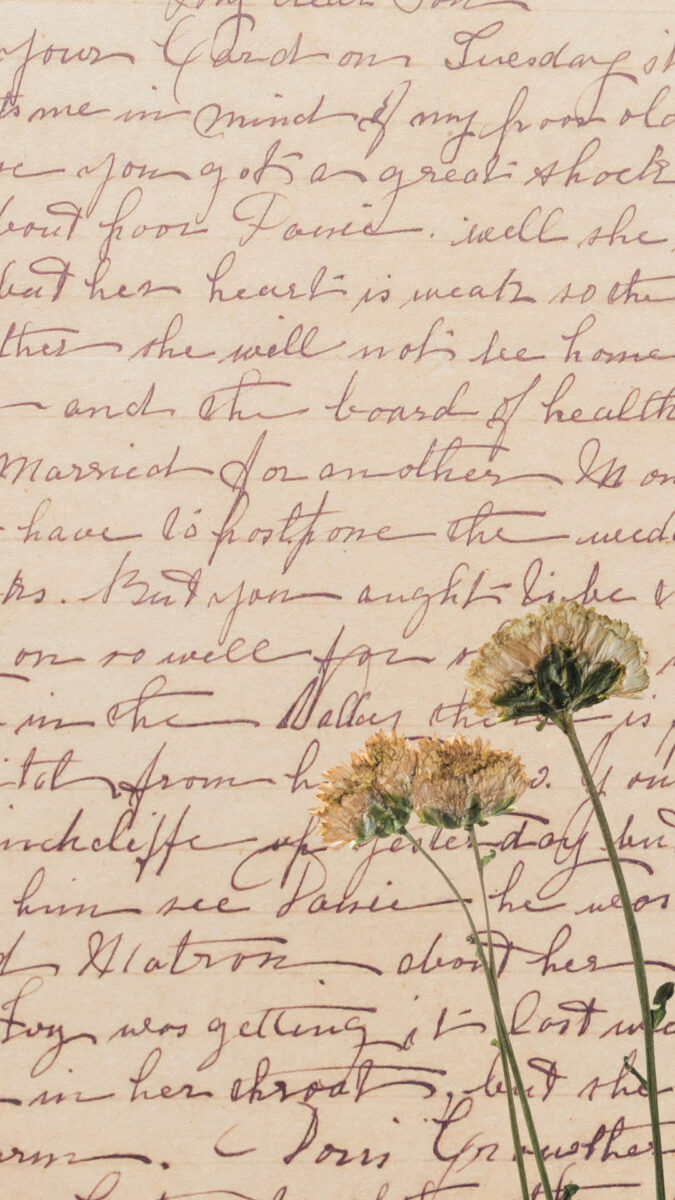 My dear Son
your Card on Tuesday it
ts me in mind of my poor old
you got a great shock
bout poor Davie. well she
but her heart is weak so the
ther she will not be home
and the board of health
Married for another Mon
have to postpone the wed
ks. But you aught to be
on so well for
in the Valley there is
from h
nchcliffe up yesterday bu
him see Davie he was
d Matron about her
Ivy was getting it last we
in her throat, but she
arm. Doris Grandmother